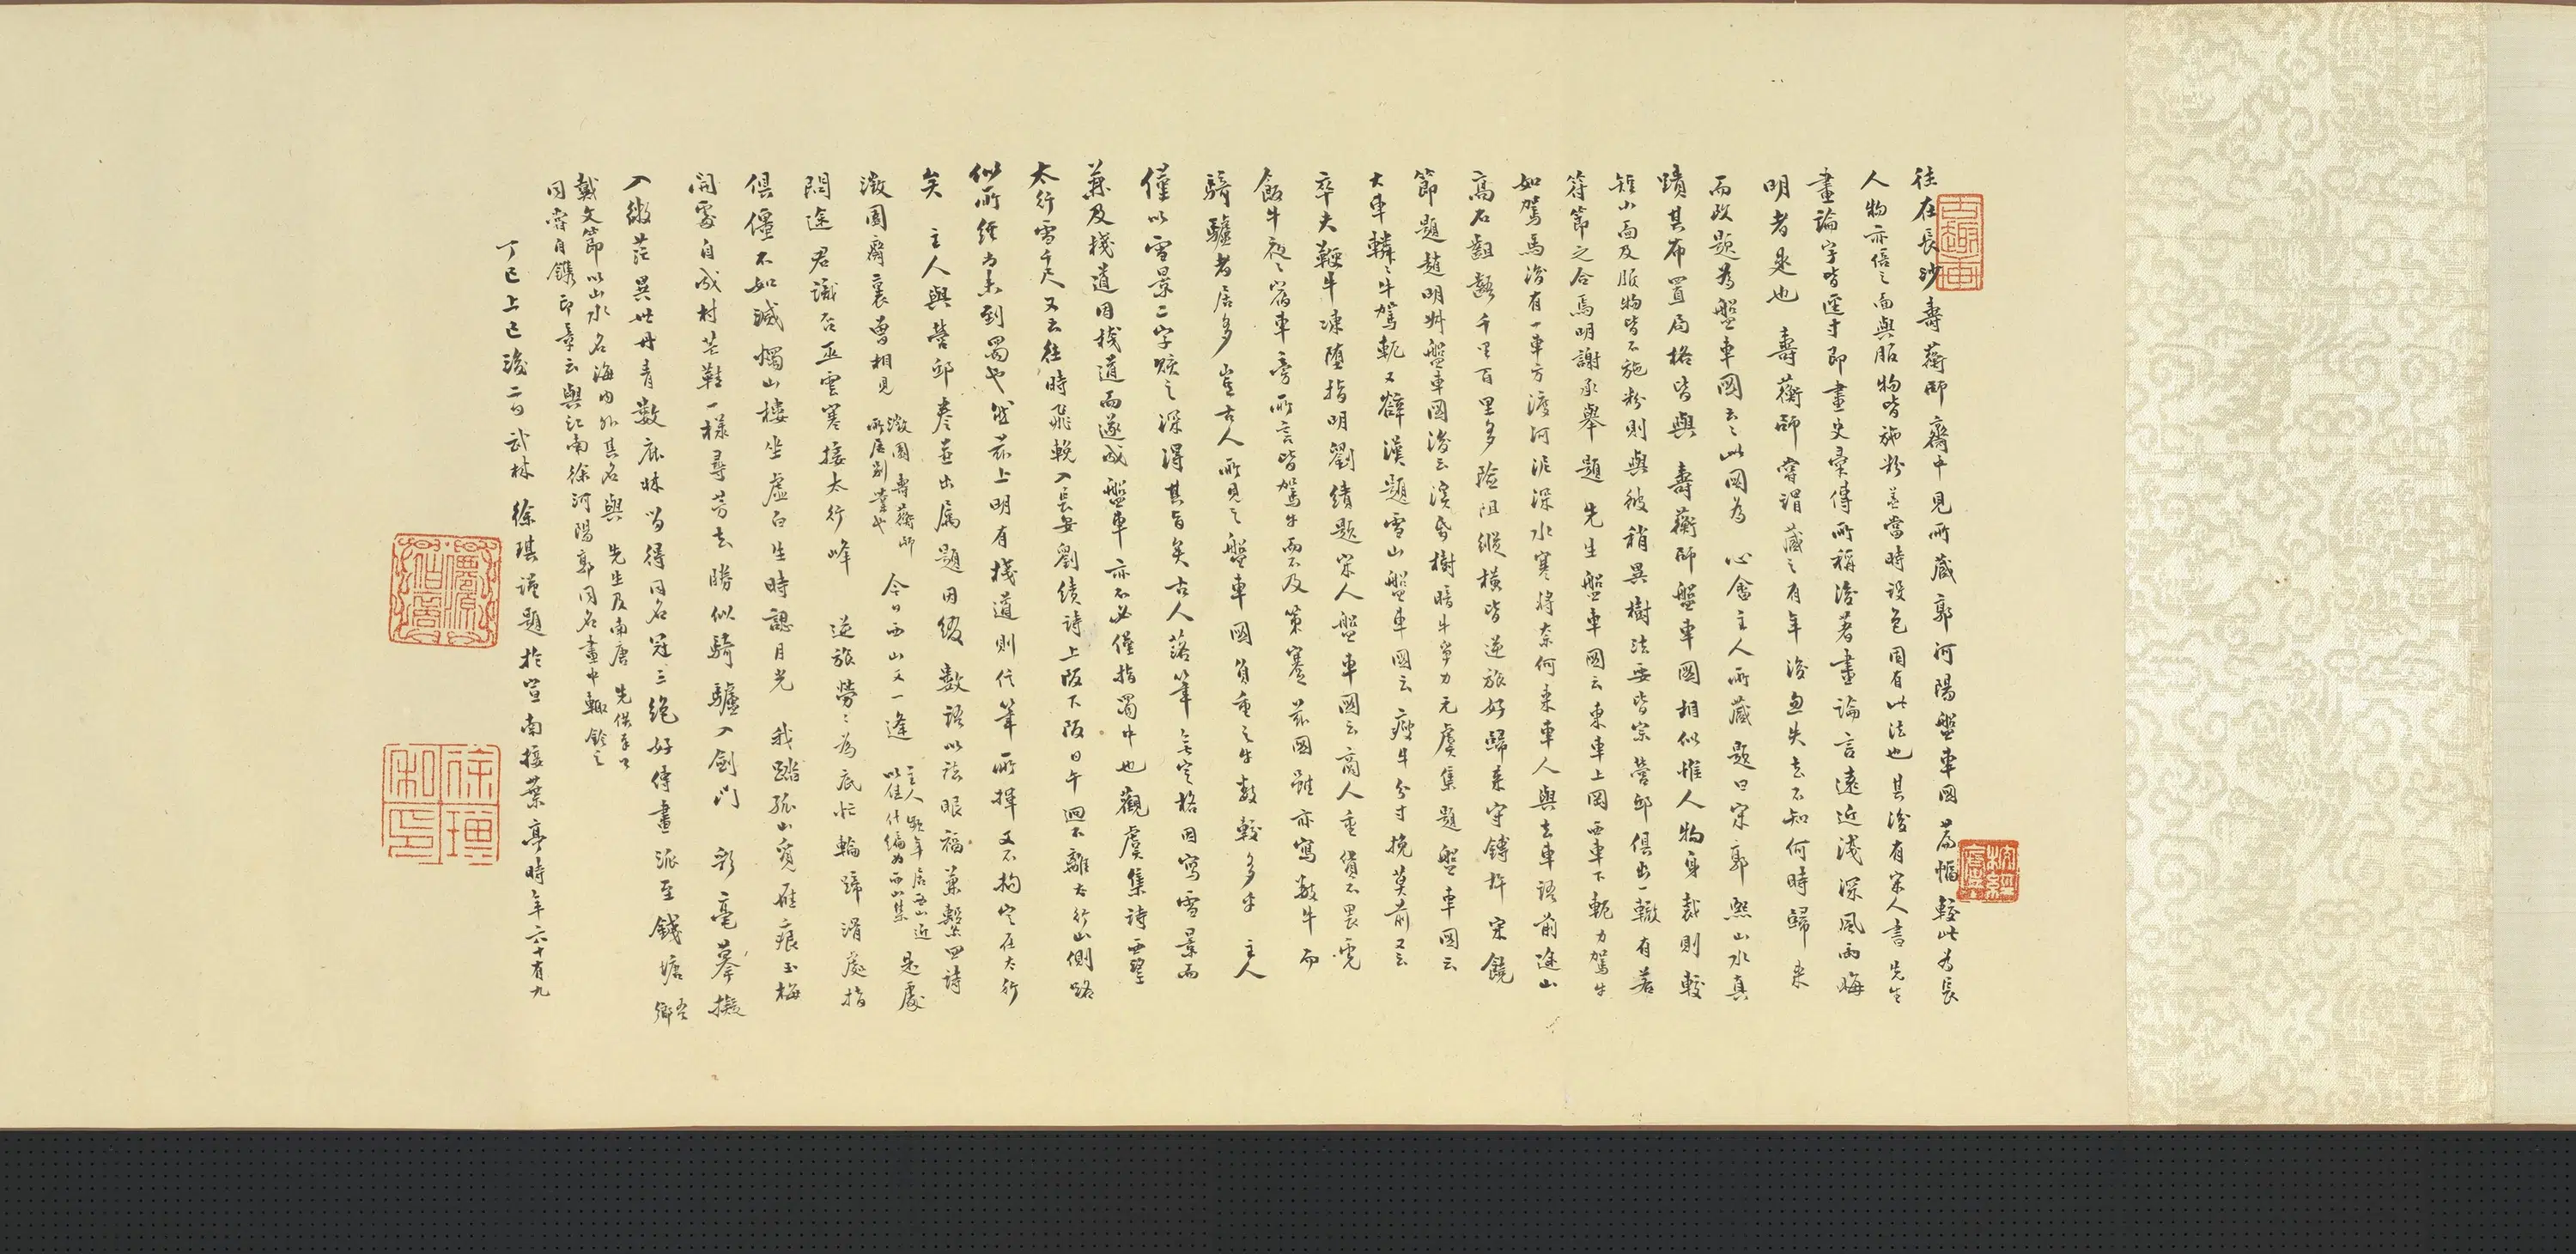 往在長沙壽蘅師齋中見所藏郭河陽盤車圖荐幅較此為長
人物亦倍之面與服物皆施粉蓋當時設色固有此法也其後有宋人書先生
畫論字皆逕寸即畫史彙傳所稱後著畫論言遠近淺深風雨晦
明者是也 壽蘅師嘗謂藏之有年後忽失去不知何時歸來
而改題為盤車圖云云此圖為 心畬主人所藏題曰宋郭熙山水真
蹟其布置局格皆與 壽蘅師盤車圖相似惟人物身裁則較
短小面及服物皆不施粉則與彼稍異樹法要皆宗營邱俱出一轍有若
符節之合焉明謝承舉題 先生盤車圖云東車上岡西車下軛力駕牛
如駕馬後有一車方渡河泥深水寒將奈何來車人與去車語前途山
高石齟齬千里百里多險阻縱橫皆逆旅好歸來守鎛杵宋饒
節題趙明叔盤車圖後云溪昏樹暗牛爭力元虞集題盤車圖云
大車轔轔牛駕軛又薛漢題雪山盤車圖云瘦牛分寸挽莫前又云
卒夫鞭牛凍墮指明劉績題宋人盤車圖云商人重貨不畏虎
飯牛夜夜宿車旁所言皆駕牛而不及策蹇茲圖雖亦寫數牛而
騎驢者居多豈古人所見之盤車圖負重之牛數較多乎 主人
僅以雪景二字賅之深得其旨矣古人落筆無定格因寫雪景而
兼及棧道因棧道而遂成盤車亦不必僅指蜀中也觀虞集詩西望
太行雪千尺又云往時飛輓入長安劉績詩上阪下阪日午迴不離太行山側路
似所經尚未到蜀也然茲上明有棧道則信筆所揮又不拘定在太行
矣 主人與營邱卷並出屬題因綴數語以誌眼福兼繫四詩
澂園齋裏曾相見 澂園壽蘅師所居別業也 今日西山又一逢 主人頻年居西山近以佳什編為西山集 是處
問途君識否巫雲寒接太行峰 逆旅勞勞為底忙輪蹄滑處指
俱僵不如滅燭山樓坐虛白生時認月光 我踏孤山覓雁痕玉梅
開處自成村芒鞋一樣尋芳去勝似騎驢入劍門 彩毫摹擬
入微茫異世丹青數鹿牀當得同名冠三絕好傳畫派至錢塘 吾鄉
戴文節以山水名海內外其名與 先生及南唐 先供奉
同嘗自鐫印章云與江南徐河陽郭同名畫中輒鈐之
丁巳上巳後二日武林徐琪謹題於宣南接葉亭時年六十有九
徐琪私印